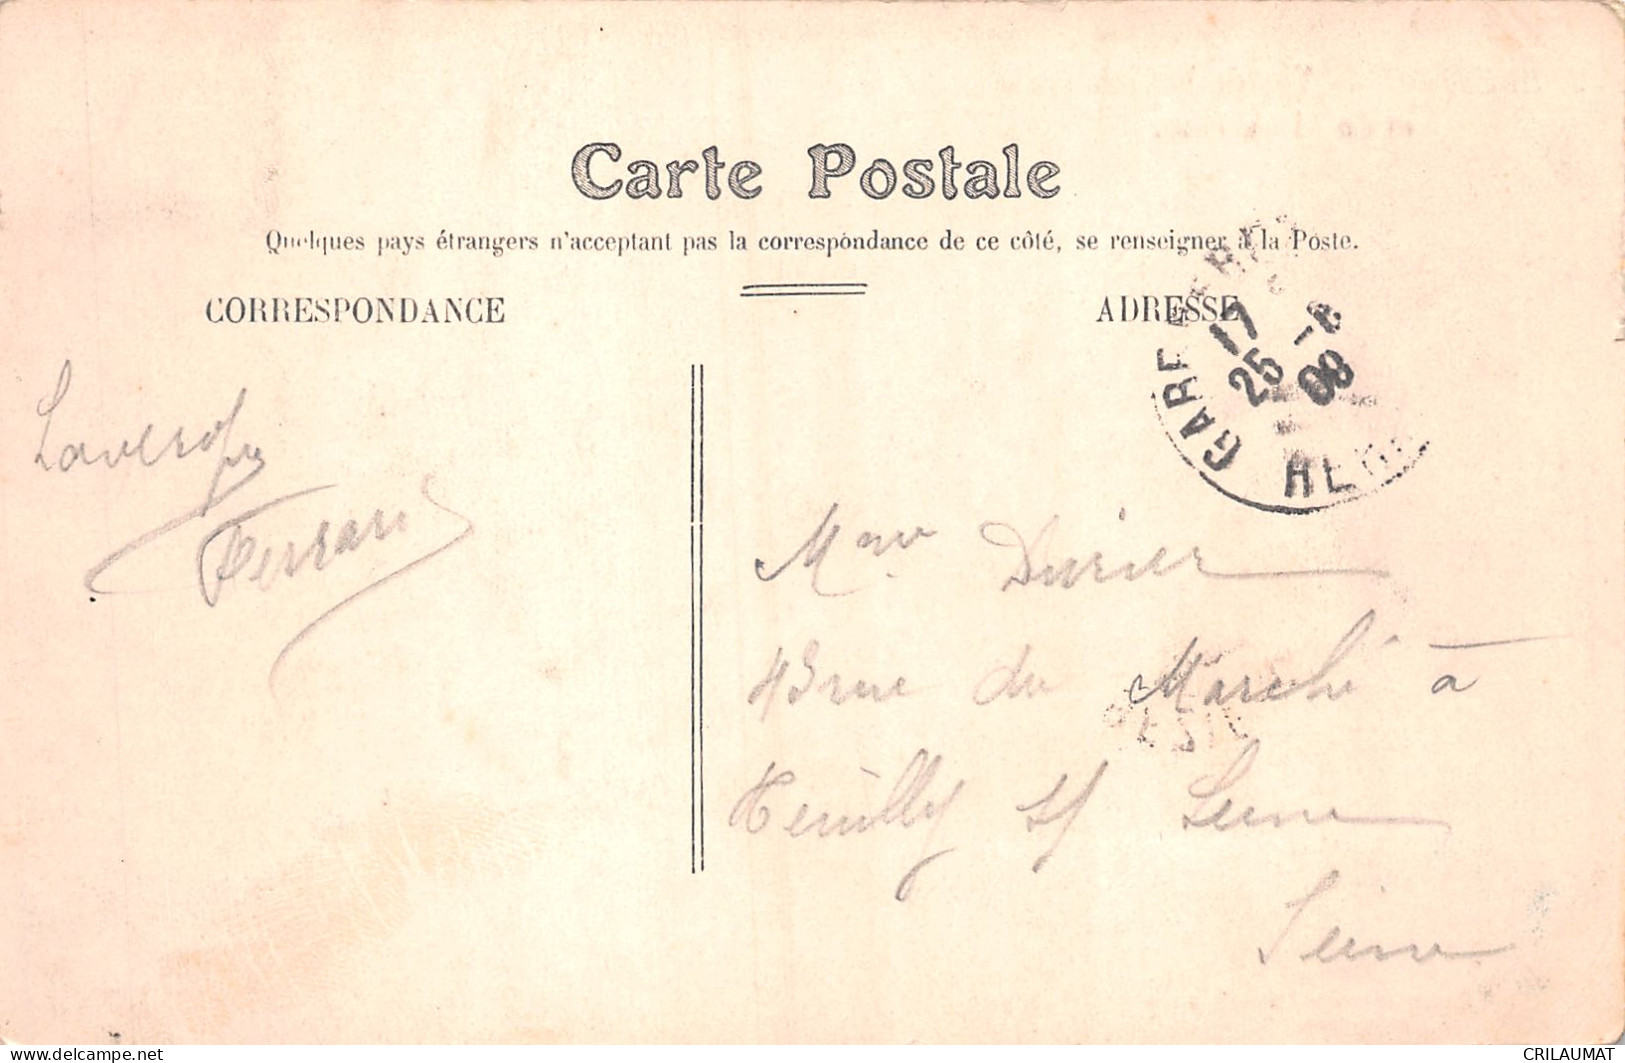 Carte Postale
Quelques pays étrangers n'acceptant pas la correspondance de ce côté, se renseigner à la Poste.
CORRESPONDANCE
ADRESSE
GARE
17
25 -8
08
Mme Durier
43 rue du Marché à
Neuilly s/ Seine
Seine
delcampe.net
CRILAUMAT